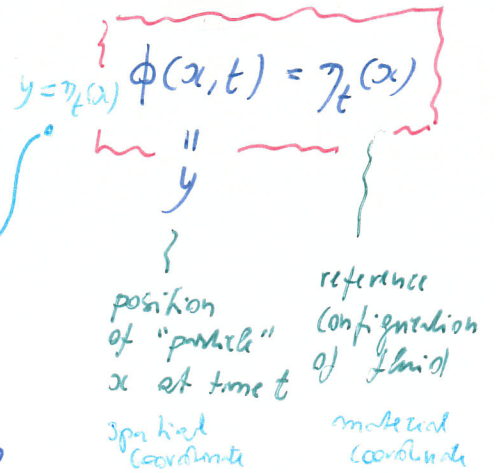 ϕ(x,t) = η_t(x)
y = η_t(x)
"
y
position
of "particle"
x at time t
spatial
coordinate
reference
configuration
of fluid
material
coordinate